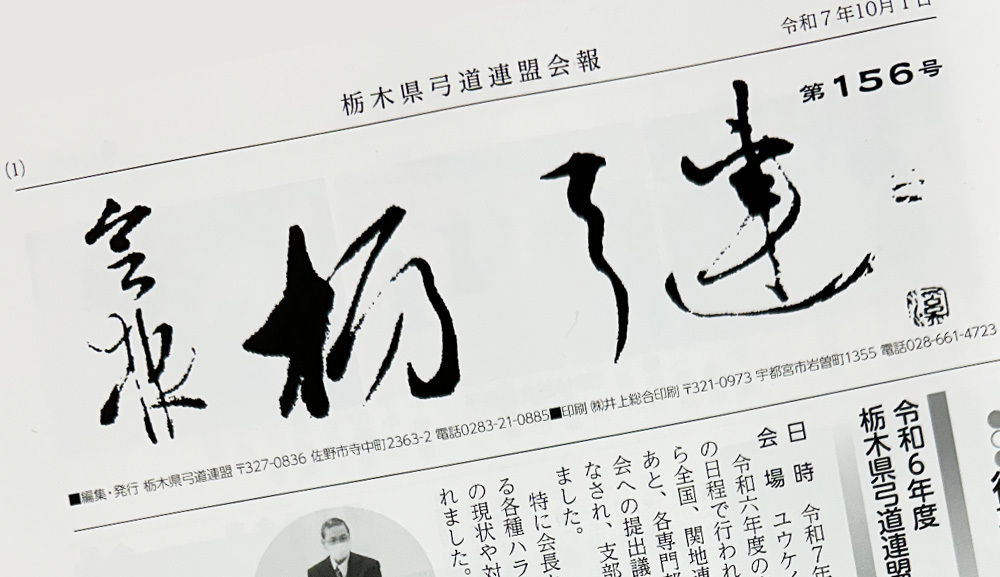 令和7年10月1日
栃木県弓道連盟会報
(1)
第156号
会報
栃弓連
■編集・発行 栃木県弓道連盟 〒327-0836 佐野市寺中町2363-2 電話0283-21-0885■印刷 ㈱井上総合印刷 〒321-0973 宇都宮市岩曽町1355 電話028-661-4723
令和6年度
栃木県弓道連盟
日時 令和7年
会場 ユウケイ
令和六年度の
の日程で行われ
ら全国、関地連
あと、各専門部
会への提出議
なされ、支部
ました。
特に会長
る各種ハラ
の現状や対
れました。